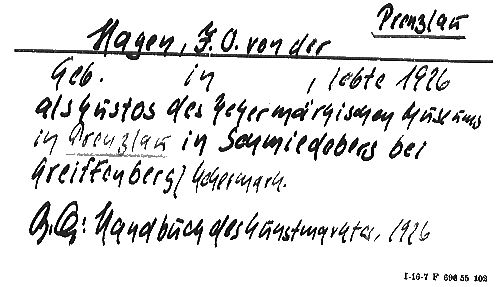 Prenzlau
Hagen, J. O. von der
Geb. in , lebte 1926
als Kustos des Uckermärkischen Museums
in Prenzlau in Schmiedeberg bei
Greiffenberg/Uckermark.
Handbuch des Kunstmarktes, 1926
I-16-7 F 696 55 102